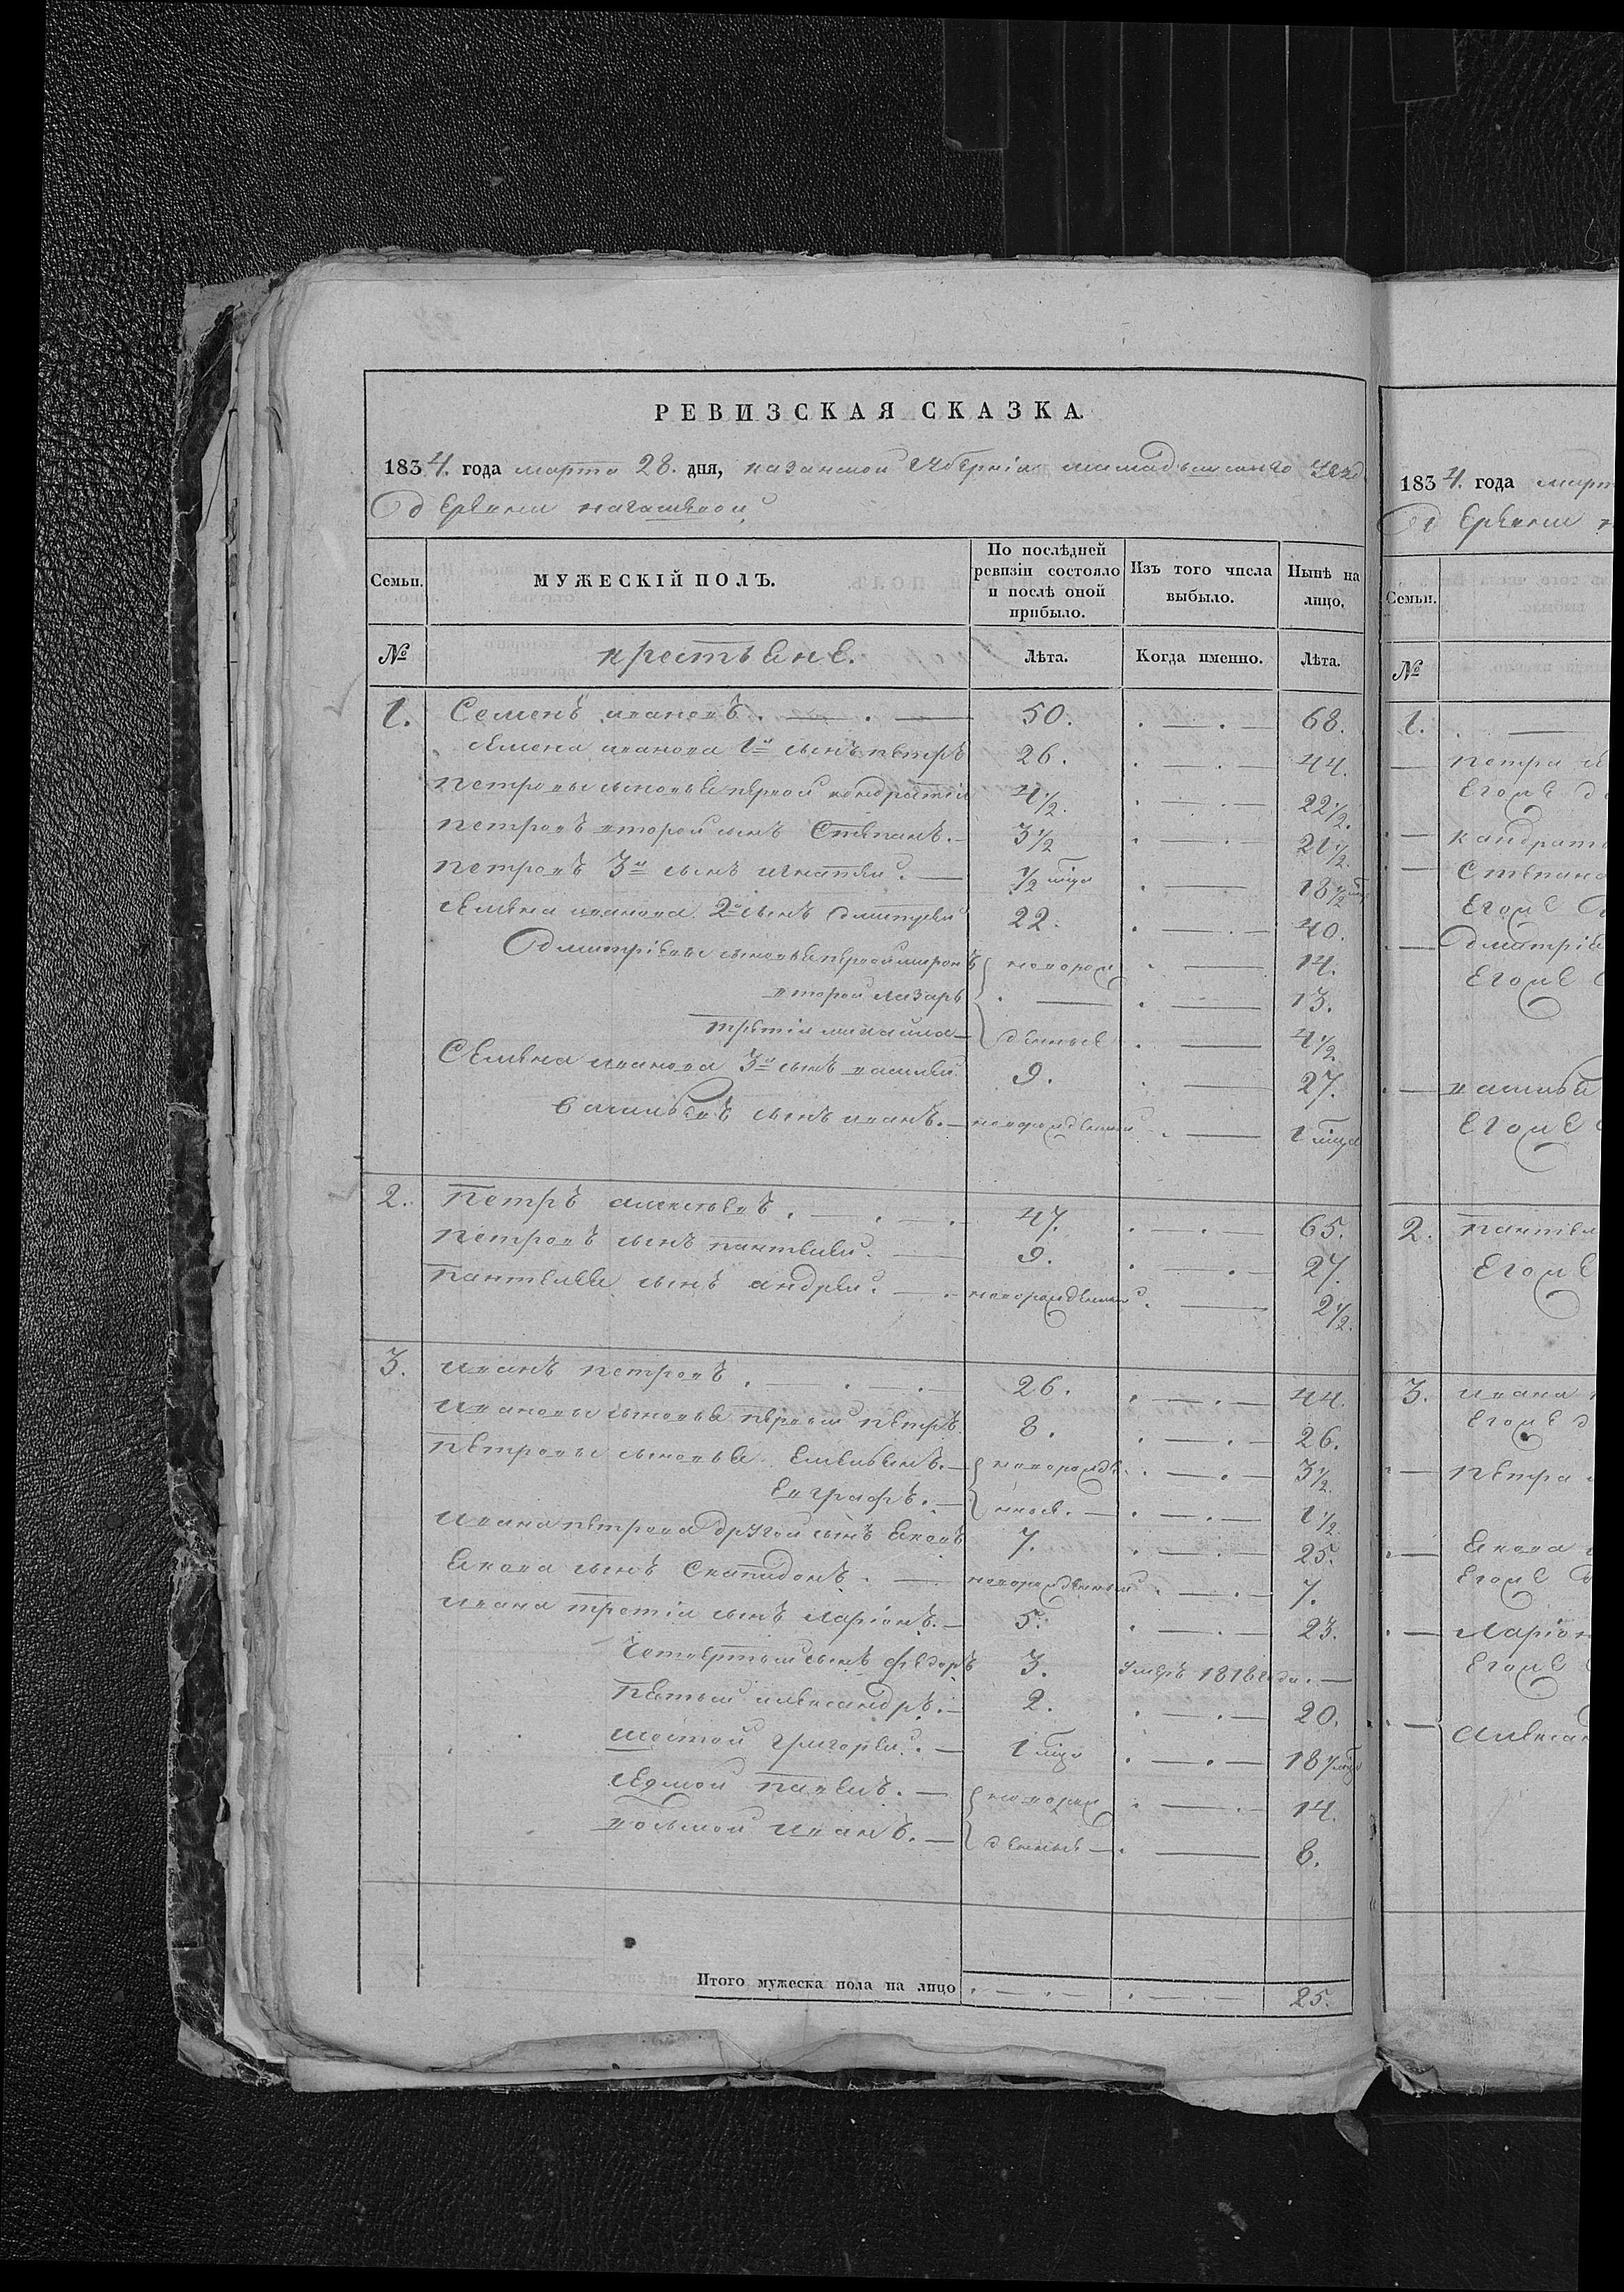 РЕВИЗСКАЯ СКАЗКА.
1834. года марта 28. дня, казанской губерніи мамадышскаго уезд
деревни
Семьи. МУЖЕСКІЙ ПОЛЪ. По послѣдней ревизіи состояло и послѣ оной прибыло. Изъ того числа выбыло. Нынѣ на лицо.
№ крестьяне. Лѣта. Когда именно. Лѣта.
1. Семенъ ивановъ. 50. 68.
Семена иванова 1й сынъ петръ 26. 44.
Петровы сыновья первой кондратій 4½. 22½.
Петровъ второй сынъ Степанъ. 3½ 21½.
Петровъ 3й сынъ игнатей. ½ 18½
Семена иванова 2й сынъ дмитрей 22. 40.
Дмитріевы сыновья первой миронъ новорож 14.
второй лазарь 13.
третій михайла денные 4½.
Семена иванова 3й сынъ василей 9. 27.
Васильевъ сынъ иванъ. новорожденный 1 мца
2. Петръ алексѣевъ. 47. 65.
Петровъ сынъ пантелей. 9. 27.
Пантелея сынъ андрей. новорожденный 2½.
3. иванъ петровъ. 26. 44.
ивановы сыновья первый петръ 8. 26.
петровы сыновья емельянъ. новорожде 3½.
евграфъ. нные. 1½
ивана петрова другой сынъ яковъ 7. 25.
якова сынъ новорожденный 7.
ивана третій сынъ ларіонъ. 5. 23.
четвертый сынъ федоръ 3. умеръ 1818 года.
пятый александръ. 2. 20.
шестой григорей. 1 18
седмой павелъ. новорож 14.
восьмой иванъ. денные 8.
Итого мужеска пола на лицо 25.
1834. года март
деревни
Семьи.
№
1.
петра
Его же
кандрать
степана
Его же
дмитрія
Его же
василья
Его же
2. пантел
Его же
3. ивана
Его же
петра
якова
Его же
ларіон
Его же
алексан